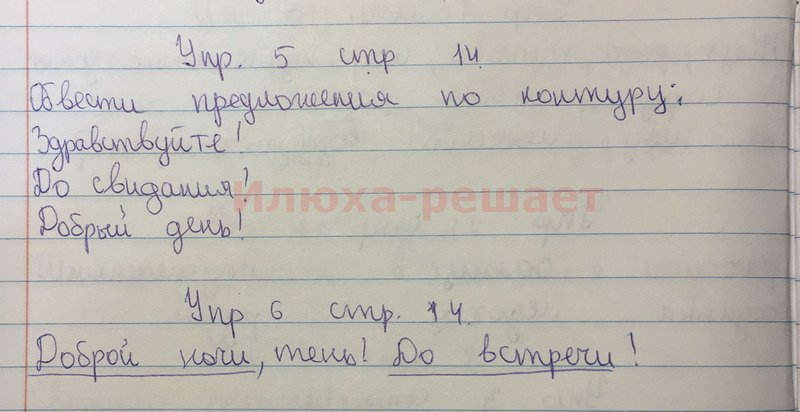 Упр. 5 стр 14.
Обвести предложения по контуру:
Здравствуйте!
До свидания!
Илюха-решает
Добрый день!
Упр 6 стр. 14.
Доброй ночи, тень! До встречи!